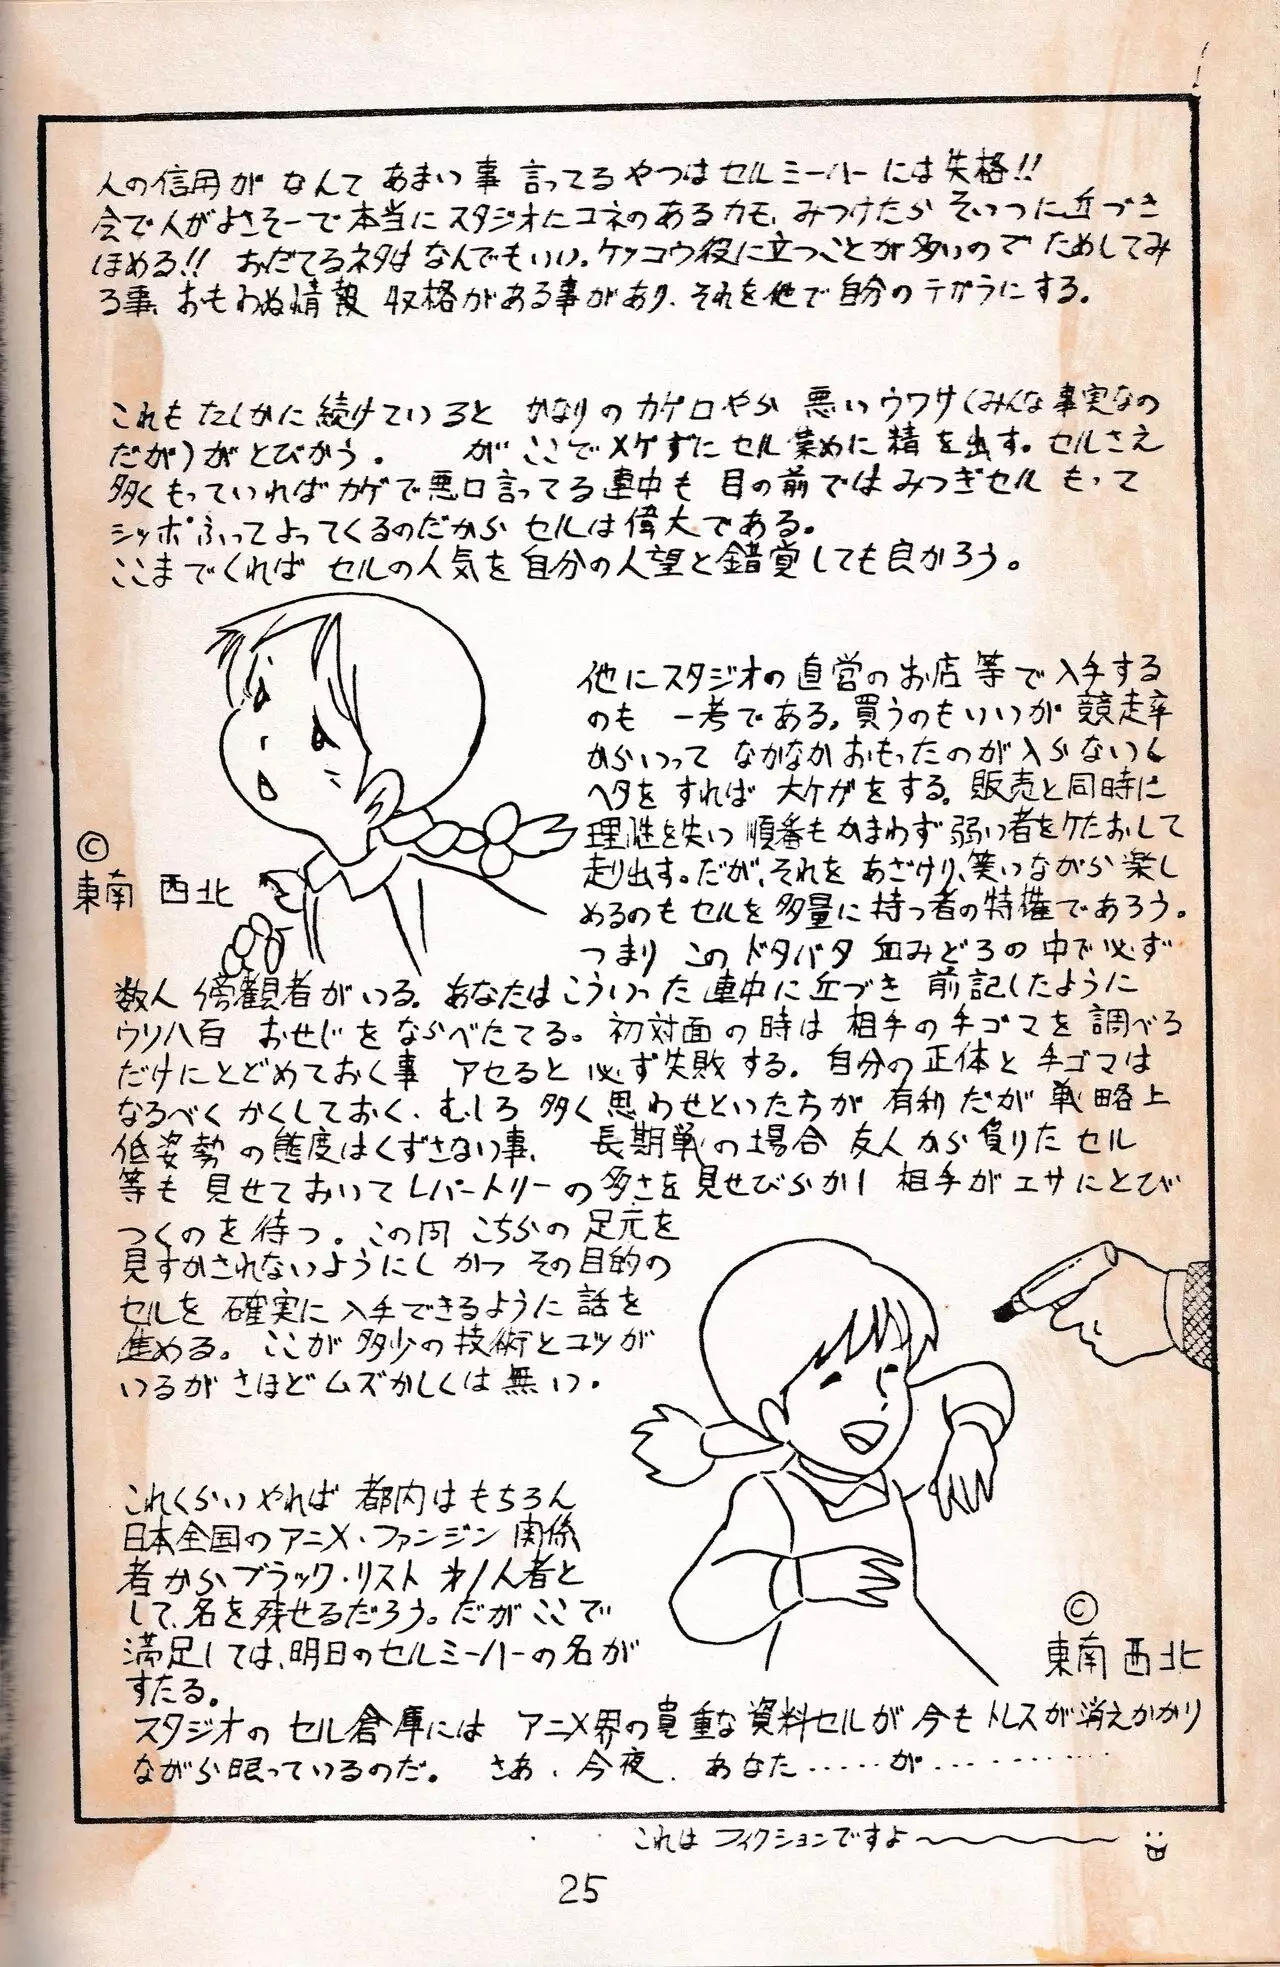 人の信用が なんて あまい事 言ってるやつはセルミーハーには失格!!
会で人がよさそーで本当にスタジオにコネのあるカモ、みつけたら そいつに近づき
ほめる!! おだてるネタは なんでもいい。ケッコウ役に立つことが多いので ためしてみ
る事、おもわぬ情報 収格がある事があり、それを他で自分のテがらにする。
これもたしかに続けていると かなりのカゲ口やら 悪いウワサ(みんな事実なの
だが)がとびかう。 が ここでメゲずにセル集めに精を出す。セルさえ
多くもっていればカゲで悪口言ってる連中も 目の前ではみつぎセル もって
シッポふってよってくるのだから セルは偉大である。
ここまでくれば セルの人気を自分の人望と錯覚しても良かろう。
他にスタジオの直営のお店等で入手する
のも 一考である。買うのもいいが 競走率
からいって なかなかおもったのが入らないし
ヘタをすれば 大ケガをする。販売と同時に
理性を失い 順番もかまわず 弱い者をけたおして
走り出す。だが、それをあざけり、笑いながら楽し
めるのもセルを多量に持つ者の特権であろう。
つまり このドタバタ 血みどろの中で必ず
©
東南 西北
数人 傍観者がいる。あなたはこういった連中に近づき 前記したように
ウソ八百 おせじをならべたてる。初対面の時は 相手の手ゴマを調べる
だけにとどめておく事 アセると 必ず失敗する。自分の正体と手ゴマは
なるべくかくしておく、むしろ 多く思わせといたちが有利だが 戦略上
低姿勢の態度はくずさない事、 長期戦の場合 友人から負りたセル
等も 見せておいてレパートリーの多さを見せびらかし 相手がエサにとび
つくのを待つ。この間こちらの足元を
見すかされないようにし かつ その目的の
セルを 確実に入手できるように 話を
進める。ここが多少の技術とコツが
いるが さほどムズかしくは無い。
これくらいやれば 都内はもちろん
日本全国のアニメ・ファンジン関係
者からブラック・リスト オ1人者と
して、名を残せるだろう。だが ここで
満足しては、明日のセルミーハーの名が
すたる。
©
東南 西北
スタジオの セル倉庫には アニメ界の貴重な資料セルが 今もトレスが消えかかり
ながら眠っているのだ。 さあ、今夜、あなた……が…………
これは フィクションですよ〜〜〜〜
25